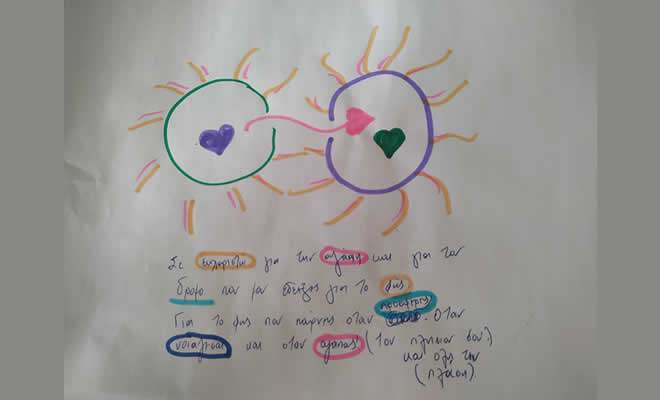 Σε ευχαριστώ για την αγάπη και για τον
δρόμο που μου έδειξες για το φως
προσφέρης
Για το φως που παίρνης όταν . Όταν
νοιάζεσαι και όταν αγαπάς (τον πλησίον σου)
και όλη την
(πλάση).